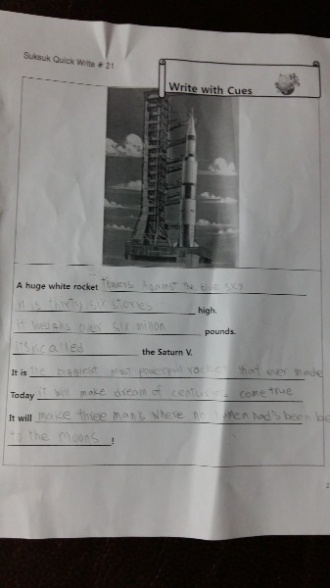 Suksuk Quick Write # 21
Write with Cues
A huge white rocket Towers Against The blue sky
it is thirty six stories high.
it weighs over six million pounds.
it's called the Saturn V.
It is the biggest most powerful rocket that ever made
Today it will make dream of centuries come true
It will make three mans where no men had's been be
to the moons!